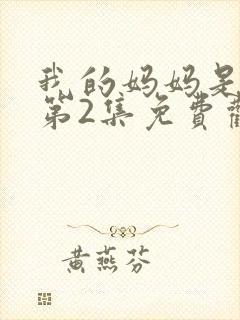 我的妈妈是
第2集免費
黄燕芬